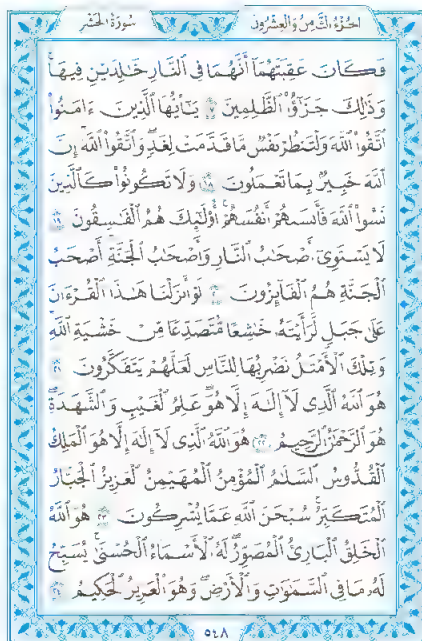 سُورَةُ الحَشْرِ الجُزْءُ الثَّامِنُ وَالعِشْرُونَ
فَكَانَ عَٰقِبَتَهُمَآ أَنَّهُمَا فِي ٱلنَّارِ خَٰلِدَيْنِ فِيهَاۚ
وَذَٰلِكَ جَزَٰٓؤُاْ ٱلظَّٰلِمِينَ ١٧ يَٰٓأَيُّهَا ٱلَّذِينَ ءَامَنُواْ
ٱتَّقُواْ ٱللَّهَ وَلْتَنظُرْ نَفْسٌ مَّا قَدَّمَتْ لِغَدٍۖ وَٱتَّقُواْ ٱللَّهَۚ إِنَّ
ٱللَّهَ خَبِيرُۢ بِمَا تَعْمَلُونَ ١٨ وَلَا تَكُونُواْ كَٱلَّذِينَ
نَسُواْ ٱللَّهَ فَأَنسَىٰهُمْ أَنفُسَهُمْۚ أُوْلَٰٓئِكَ هُمُ ٱلْفَٰسِقُونَ ١٩
لَا يَسْتَوِيٓ أَصْحَٰبُ ٱلنَّارِ وَأَصْحَٰبُ ٱلْجَنَّةِۚ أَصْحَٰبُ
ٱلْجَنَّةِ هُمُ ٱلْفَآئِزُونَ ٢٠ لَوْ أَنزَلْنَا هَٰذَا ٱلْقُرْءَانَ
عَلَىٰ جَبَلٍ لَّرَأَيْتَهُۥ خَٰشِعًا مُّتَصَدِّعًا مِّنْ خَشْيَةِ ٱللَّهِۚ
وَتِلْكَ ٱلْأَمْثَٰلُ نَضْرِبُهَا لِلنَّاسِ لَعَلَّهُمْ يَتَفَكَّرُونَ ٢١
هُوَ ٱللَّهُ ٱلَّذِي لَآ إِلَٰهَ إِلَّا هُوَۖ عَٰلِمُ ٱلْغَيْبِ وَٱلشَّهَٰدَةِۖ
هُوَ ٱلرَّحْمَٰنُ ٱلرَّحِيمُ ٢٢ هُوَ ٱللَّهُ ٱلَّذِي لَآ إِلَٰهَ إِلَّا هُوَ ٱلْمَلِكُ
ٱلْقُدُّوسُ ٱلسَّلَٰمُ ٱلْمُؤْمِنُ ٱلْمُهَيْمِنُ ٱلْعَزِيزُ ٱلْجَبَّارُ
ٱلْمُتَكَبِّرُۚ سُبْحَٰنَ ٱللَّهِ عَمَّا يُشْرِكُونَ ٢٣ هُوَ ٱللَّهُ
ٱلْخَٰلِقُ ٱلْبَارِئُ ٱلْمُصَوِّرُۖ لَهُ ٱلْأَسْمَآءُ ٱلْحُسْنَىٰۚ يُسَبِّحُ
لَهُۥ مَا فِي ٱلسَّمَٰوَٰتِ وَٱلْأَرْضِۖ وَهُوَ ٱلْعَزِيزُ ٱلْحَكِيمُ ٢٤
٥٤٨